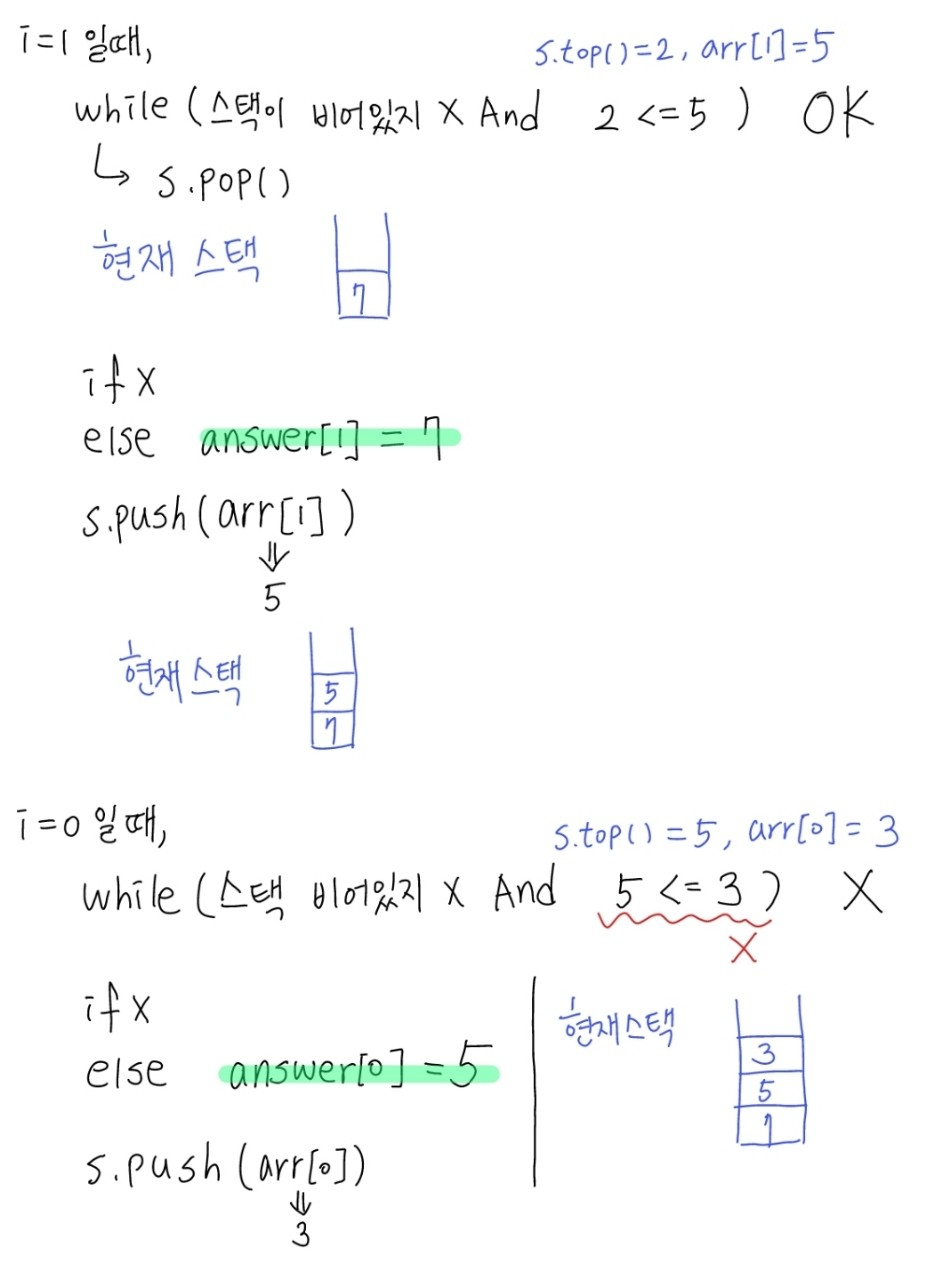 i=1 일때,
s.top()=2, arr[1]=5
while (스택이 비어있지 X And 2 <=5 ) OK
↳ s.pop()
현재 스택
7
if X
else answer[1] = 7
s.push(arr[1])
⇓
5
현재 스택
5
7
i=0 일때,
s.top() = 5, arr[0] = 3
while (스택 비어있지 X And 5 <= 3 ) X
X
if X
else answer[0] = 5
s.push(arr[0])
⇓
3
현재스택
3
5
7